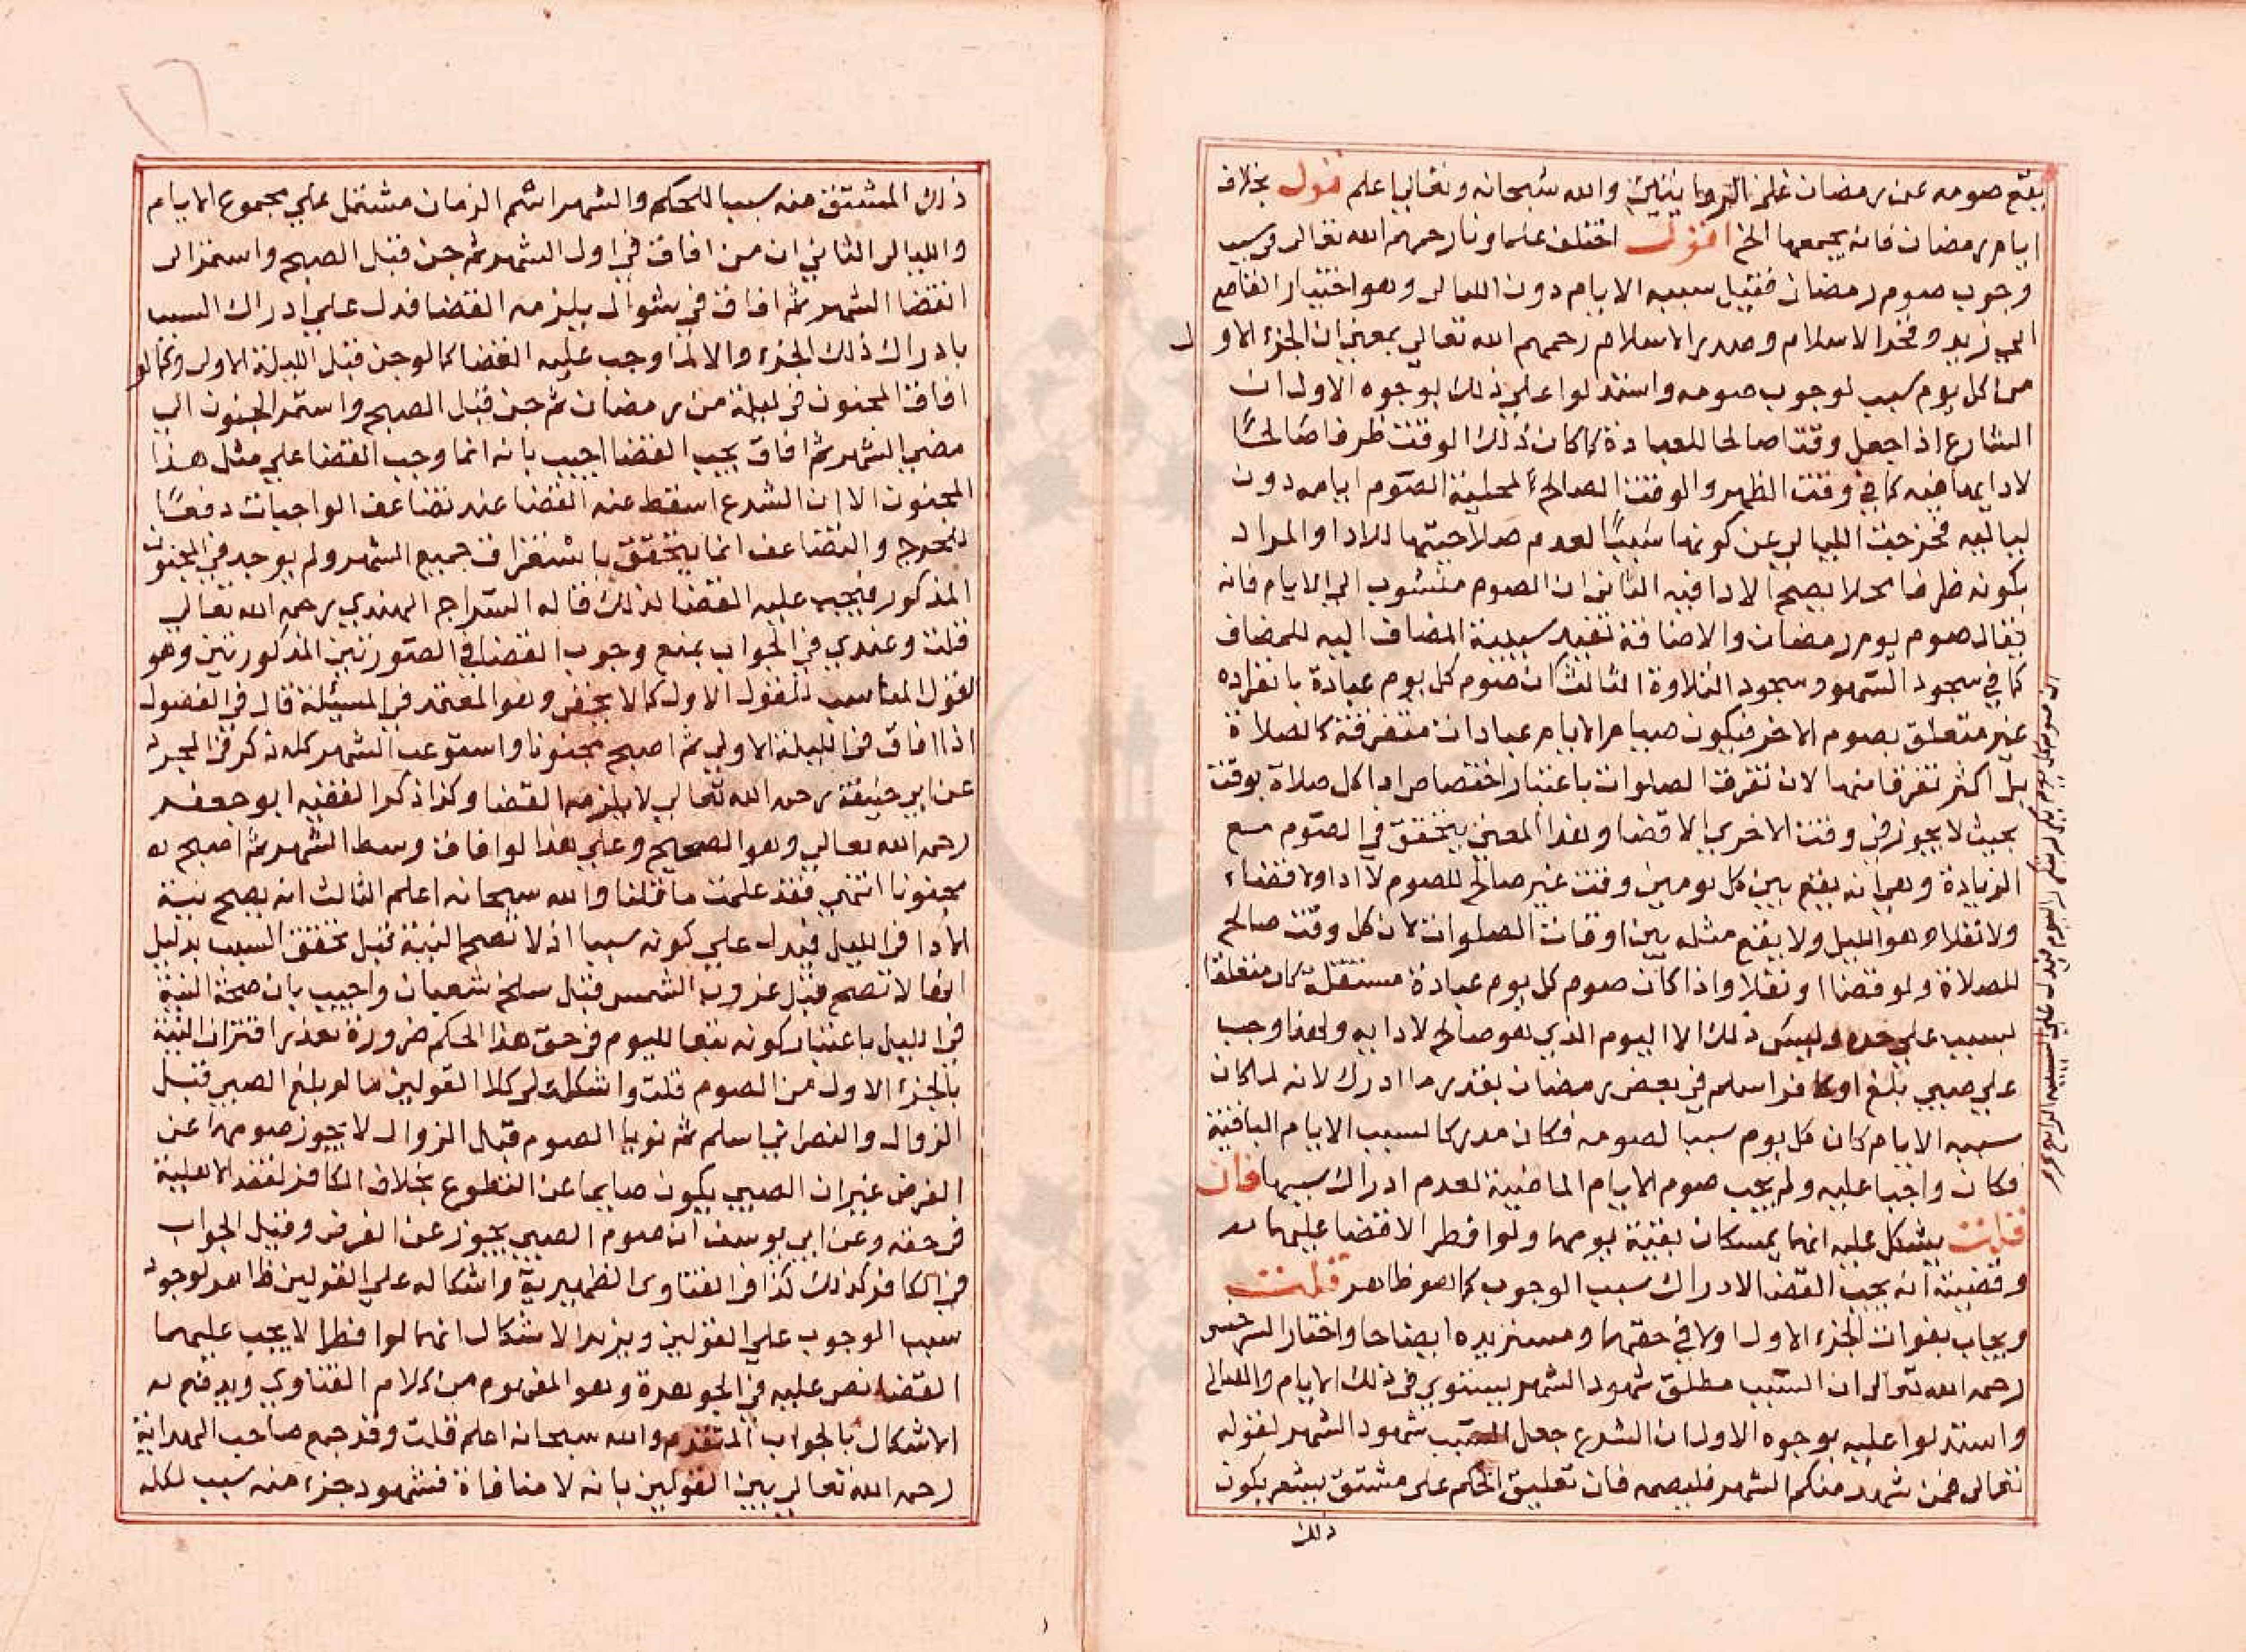 يقع صومه عن رمضان علي الروايتين والله سبحانه وتعالي اعلم قوله بخلاف
ايام رمضان فانه يجمعها الخ اقول اختلف علماونا رحمهم الله تعالى في سبب
وجوب صوم رمضان فقيل سببه الايام دون الليالى وهو اختيار القاضي
ابي زيد وفخر الاسلام وصدر الاسلام رحمهم الله تعالي بمعني ان الجزء الاول
من كل يوم سبب لوجوب صومه واستدلوا علي ذلك بوجوه الاول ان
الشارع اذا جعل وقتا صالحا للعبادة كان ذلك الوقت ظرفا صالحا
لادايها فيه كما في وقت الظهر والوقت الصالح لمحلية الصوم ايامه دون
لياليه فخرجت الليالي عن كونها سببا لعدم صلاحيتها للادا والمراد
بكونه ظرفا محلا يصح الادا فيه الثاني ان الصوم منسوب الي الايام فانه
يقال صوم يوم رمضان والاضافة تفيد سببية المضاف اليه للمضاف
كما في سجود السهو وسجود التلاوة الثالث ان صوم كل يوم عبادة بانفراده
غير متعلق بصوم الاخر فيكون صيام الايام عبادات متفرقة كالصلاة
بل اكثر تفرقا منها لان تفرق الصلوات باعتبار اختصاص ادا كل صلاة بوقت
بحيث لا يجوز في وقت الاخري الا قضا وهذا المعني يتحقق في الصوم مع
الزيادة وهي انه يقع بين كل يومين وقت غير صالح للصوم لا ادا ولا قضاء
ولا نفلا وهو الليل ولا يقع مثله بين اوقات الصلوات لان كل وقت صالح
للصلاة ولو قضا او نفلا واذا كان صوم كل يوم عبادة مستقلة كان متعلقا
بسبب علي حده وليس ذلك الا اليوم الذي هو صالح لادايه ولهذا وجب
علي صبي بلغ او كافر اسلم في بعض رمضان بقدر ما ادرك لانه لما كان
سببه الايام كان كل يوم سببا لصومه فكان مدركا لسبب الايام الباقية
فكان واجبا عليه ولم يجب صوم الايام الماضية لعدم ادراك سببها فان
قلت يشكل عليه انهما يمسكان بقية يومهما ولو افطرا لا قضا عليهما
وقضيته انه يجب القضا لادراك سبب الوجوب كما هو ظاهر قلت
ويجاب بفوات الجزء الاول اولا في حقهما وستزيده ايضاحا واختار السرخسي
رحمه الله تعالى ان السبب مطلق شهود الشهر يستوي في ذلك الايام والليالي
واستدلوا عليه بوجوه الاول ان الشرع جعل السبب شهود الشهر لقوله
تعالى فمن شهد منكم الشهر فليصمه فان تعليق الحكم على مشتق يشعر بكون
ذلك
ذلك المشتق منه سببا للحكم والشهر اسم الزمان مشتمل علي مجموع الايام
والليالي الثاني ان من افاق في اول الشهر ثم جن قبل الصبح واستمر الى
انقضا الشهر ثم افاق في شوال يلزمه القضا فدل علي ادراك السبب
بادراك ذلك الجزء والا لما وجب عليه القضا كما لو جن قبل الليلة الاولى وكما لو
افاق المجنون في ليلة من رمضان ثم جن قبل الصبح واستمر الجنون الي
مضي الشهر ثم افاق يجب القضا اجيب بانه انما وجب القضا علي مثل هذا
المجنون الا ان الشرع اسقط عنه القضا عند تضاعف الواجبات دفعا
للحرج والتضاعف انما يتحقق باستغراق جميع الشهر ولم يوجد في المجنون
المذكور فيجب عليه القضا لذلك قاله السراج الهندي رحمه الله تعالي
قلت وعندي في الجواب بمنع وجوب القضا في الصورتين المذكورتين وهو
القول المناسب للقول الاول كما لا يخفى وهو المعتمد في المسيلة قال في الفصول
اذا افاق في الليلة الاولي ثم اصبح مجنونا واستوعب الشهر كله ذكر في المجرد
عن ابي حنيفة رحمه الله تعالي لا يلزمه القضا وكذا ذكر الفقيه ابو جعفر
رحمه الله تعالي وهو الصحيح وعلي هذا لو افاق وسط الشهر ثم اصبح
مجنونا انتهي فقد علمت ما قلنا والله سبحانه اعلم الثالث انه يصح نية
الادا في الليل فيدل علي كونه سببا اذ لا تصح النية قبل تحقق السبب بدليل
انها لا تصح قبل غروب الشمس قبل سلخ شعبان واجيب بان صحة النية
في الليل باعتبار كونه تبعا لليوم في حق هذا الحكم ضرورة تعذر اقتران النية
بالجزء الاول من الصوم قلت واشكل على كلا القولين ما لو بلغ الصبي قبل
الزوال والنصراني اسلم ثم نويا الصوم قبل الزوال لا يجوز صومهما عن
الفرض غير ان الصبي يكون صايما عن التطوع بخلاف الكافر لفقد الاهلية
في حقه وعن ابي يوسف ان صوم الصبي يجوز عن الفرض وقيل الجواب
في الكافر كذلك كذا في الفتاوى الظهيرية واشكاله علي القولين ظاهر لوجود
سبب الوجوب علي القولين ويزيد الاشكال انهما لو افطرا لا يجب عليهما
القضا نص عليه في الجوهرة وهو المفهوم من كلام الفتاوي ويدفع
الاشكال بالجواب المتقدم والله سبحانه اعلم قلت وقد جمع صاحب الهداية
رحمه الله تعالى بين القولين بانه لا منافاة فشهود جزء منه سبب لكله